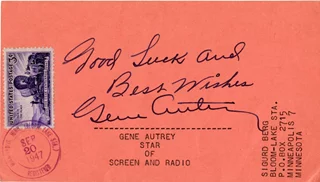 Good Luck and
Best Wishes
Gene Autry
GENE AUTREY
STAR
OF
SCREEN AND RADIO
UNITED STATES POSTAGE
3¢
SEP
20
1947
SIGURD BERG
BLOOM-LAKE STA.
P.O. BOX 2715
MINNEAPOLIS 7
MINNESOTA